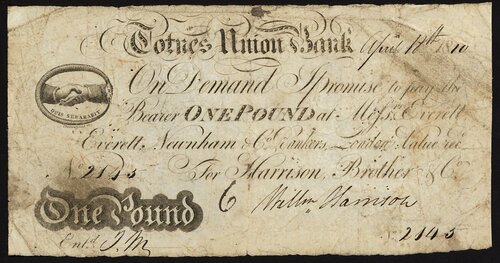 Totnes Union Bank April 14th 1810
On Demand I promise to pay the
Bearer ONE POUND at Messrs. Everett
QUIS SEPARABIT
Everett, Newnham & Co. Bankers, London. Value recd.
No. 2145 For Harrison, Brother & Co.
One Pound 6 Willm Harrison
Entd. J.M 2145